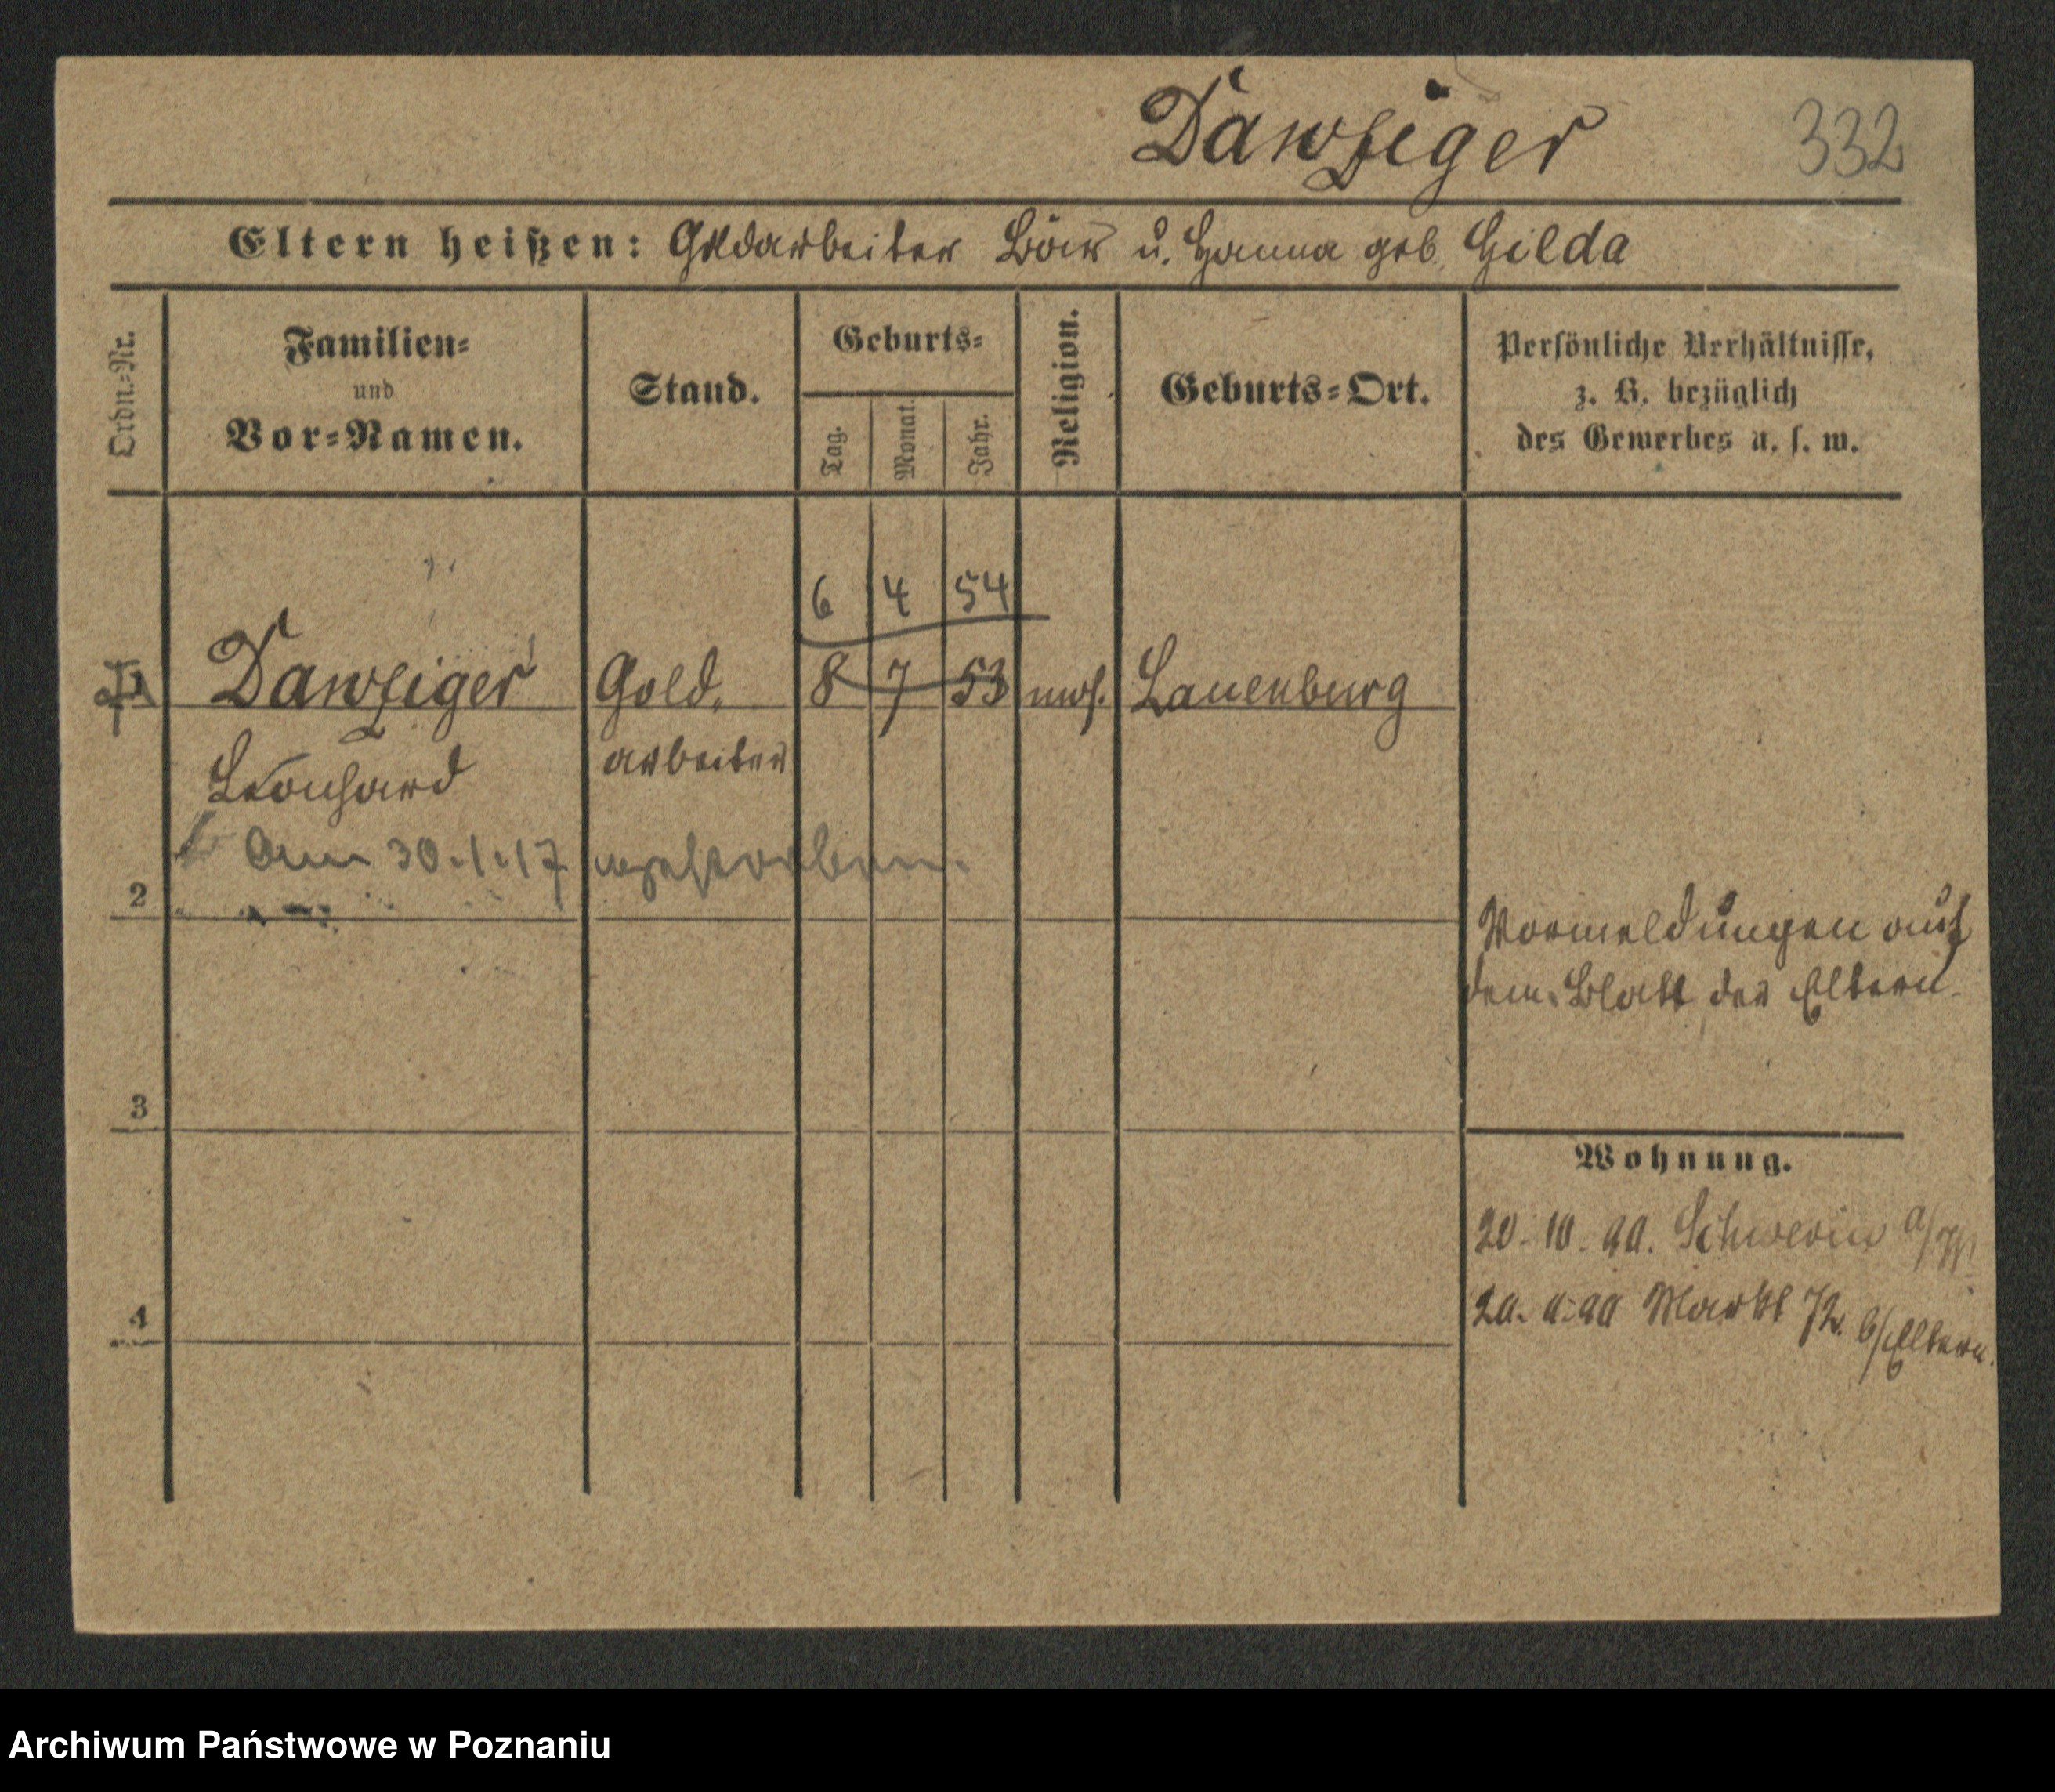 Danziger 332
Eltern heißen: Goldarbeiter Bär u. Hanna geb. Hilda
Ordn.-Nr.
Familien-
und
Vor-Namen.
Stand.
Geburts-
Tag.
Monat.
Jahr.
Religion.
Geburts-Ort.
Persönliche Verhältnisse,
z. B. bezüglich
des Gewerbes u. s. w.
6 4 54
1 Danziger Gold- 8 7 53 mos. Lauenburg
Leonhard arbeiter
Am 30.1.17 gestorben.
2
Vormeldungen auf
dem Blatt der Eltern
3
Wohnung.
20. 10. Schwerin a/W.
Markt 72. b/Eltern.
4
Archiwum Państwowe w Poznaniu